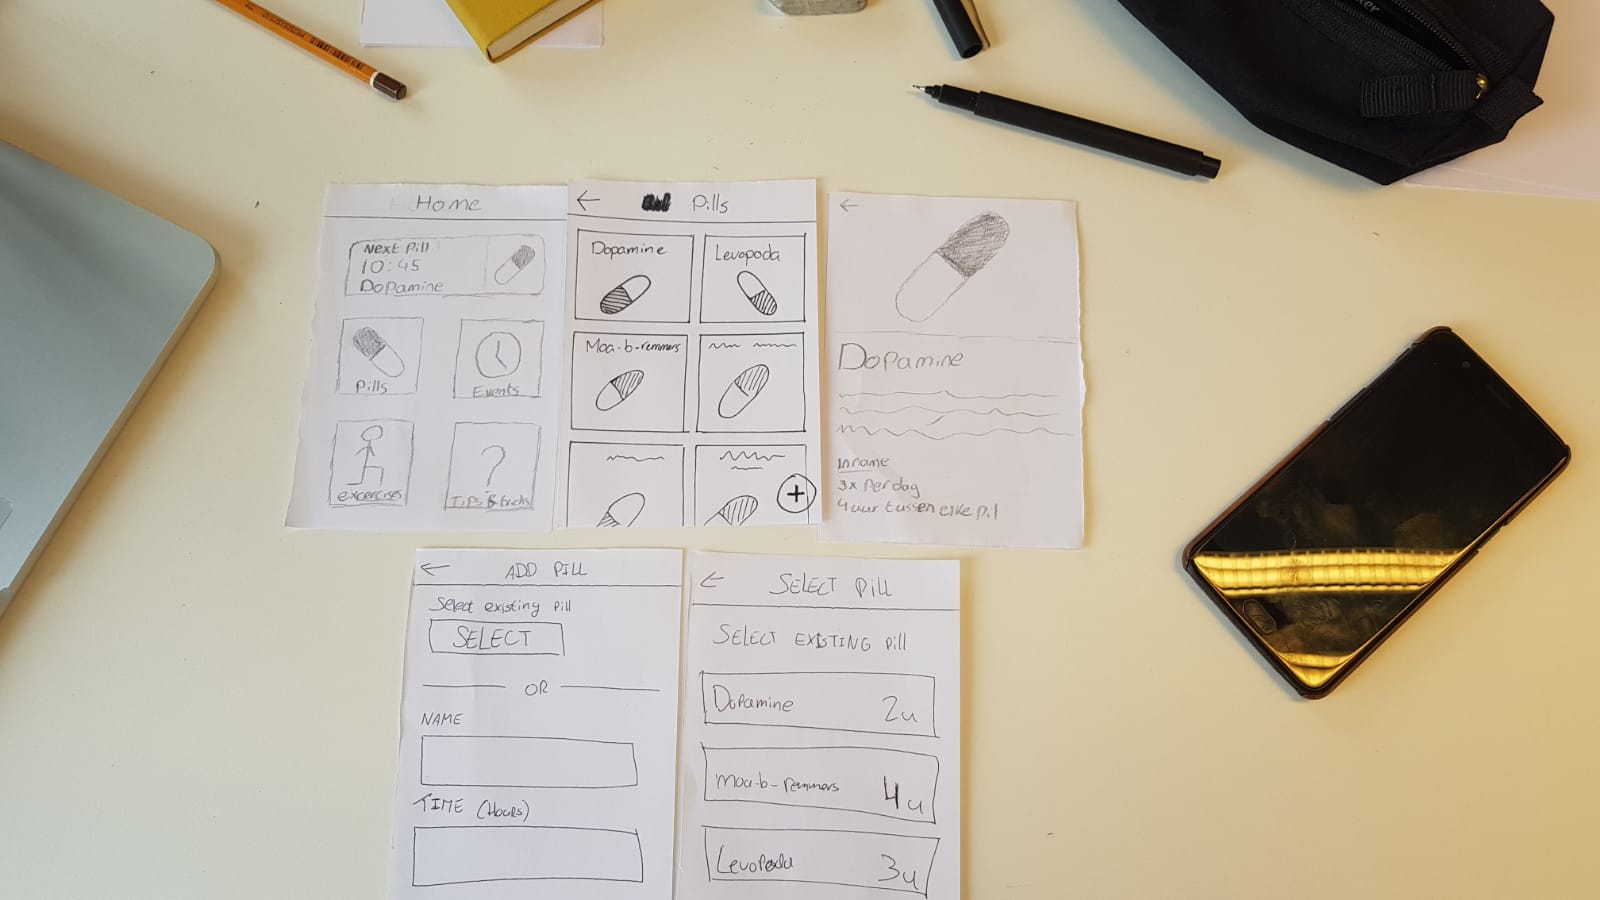 ker
Home
Next Pill
10:45
Dopamine
Pills
Events
excercises
Tips & tricks
Pills
Dopamine
Levopoda
Moa-b-remmers
+
Dopamine
Inname
3x per dag
4 uur tussen elke pil
ADD PILL
Select existing pill
SELECT
OR
NAME
TIME (Hours)
SELECT Pill
SELECT EXISTING Pill
Dopamine 2u
Moa-b-remmers 4u
Levopoda 3u